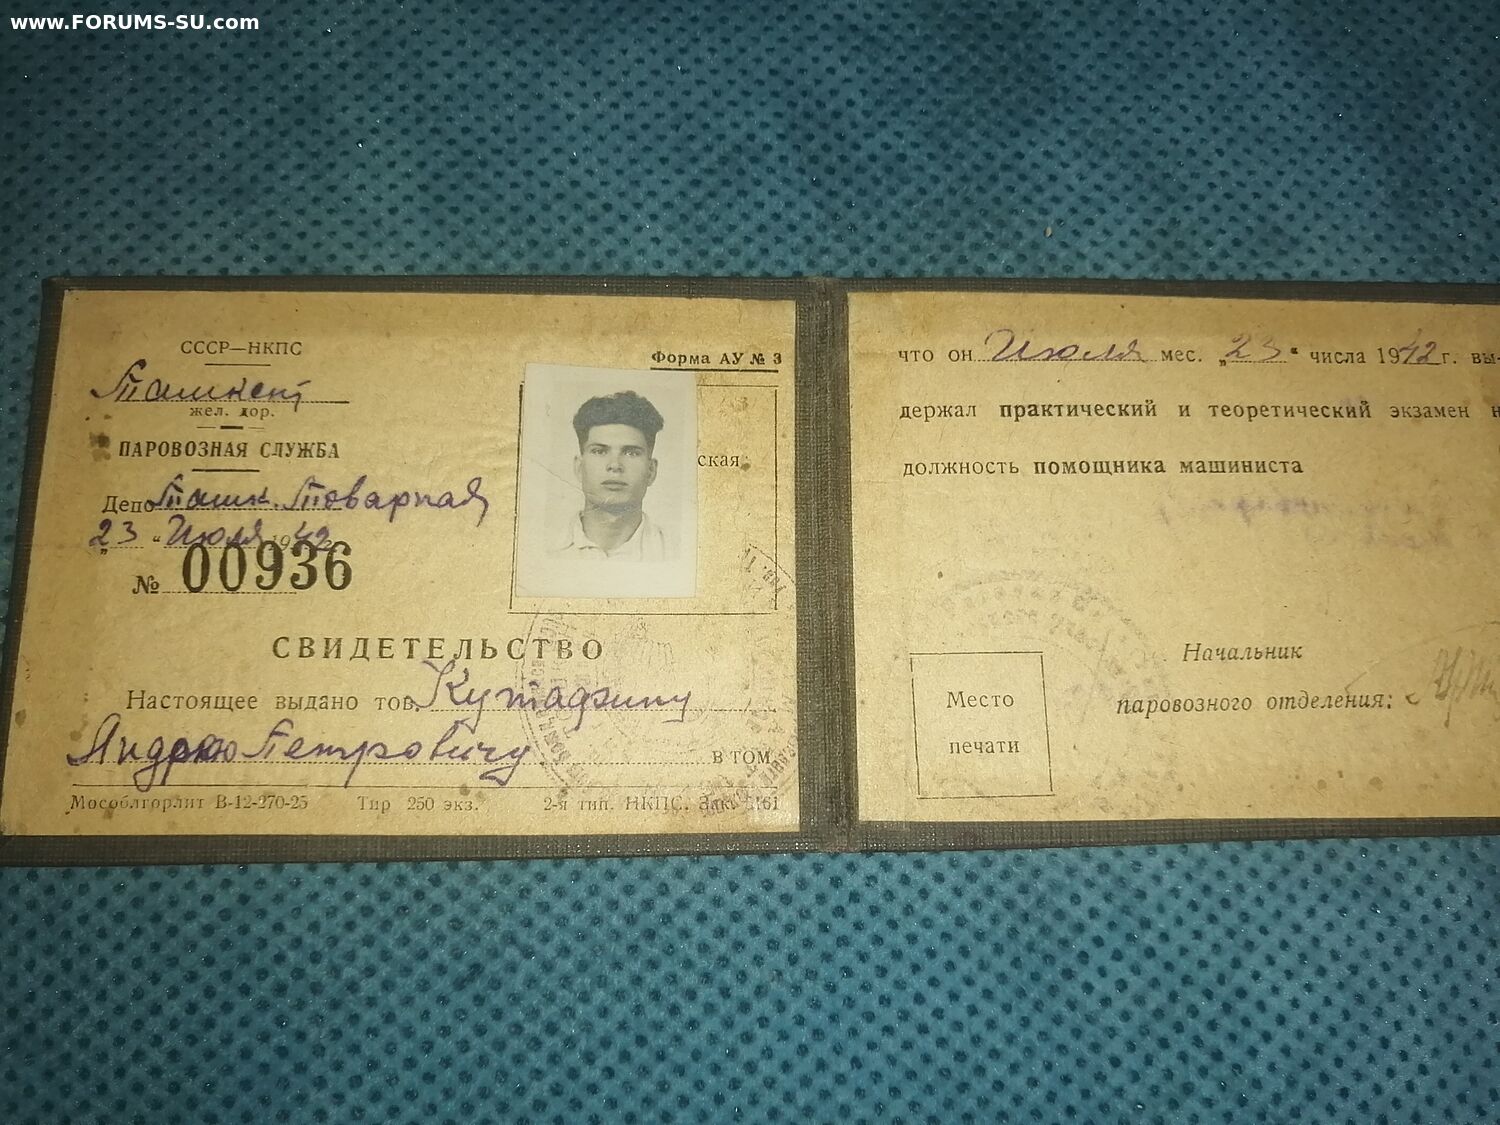 www.FORUMS-SU.com
СССР—НКПС
Ташкент
жел. дор.
ПАРОВОЗНАЯ СЛУЖБА
Депо Ташк. Товарная
„23“ Июля 1942 г.
№ 00936
Форма АУ № 3
ская
СВИДЕТЕЛЬСТВО
Настоящее выдано тов.
Андрею Петровичу в том,
Мособлгорлит В-12-270-25 Тир 250 экз. 2-я тип. НКПС. Зак.
что он Июля мес. „23“ числа 1942 г. вы-
держал практический и теоретический экзамен н
должность помощника машиниста
Начальник
паровозного отделения:
Место
печати